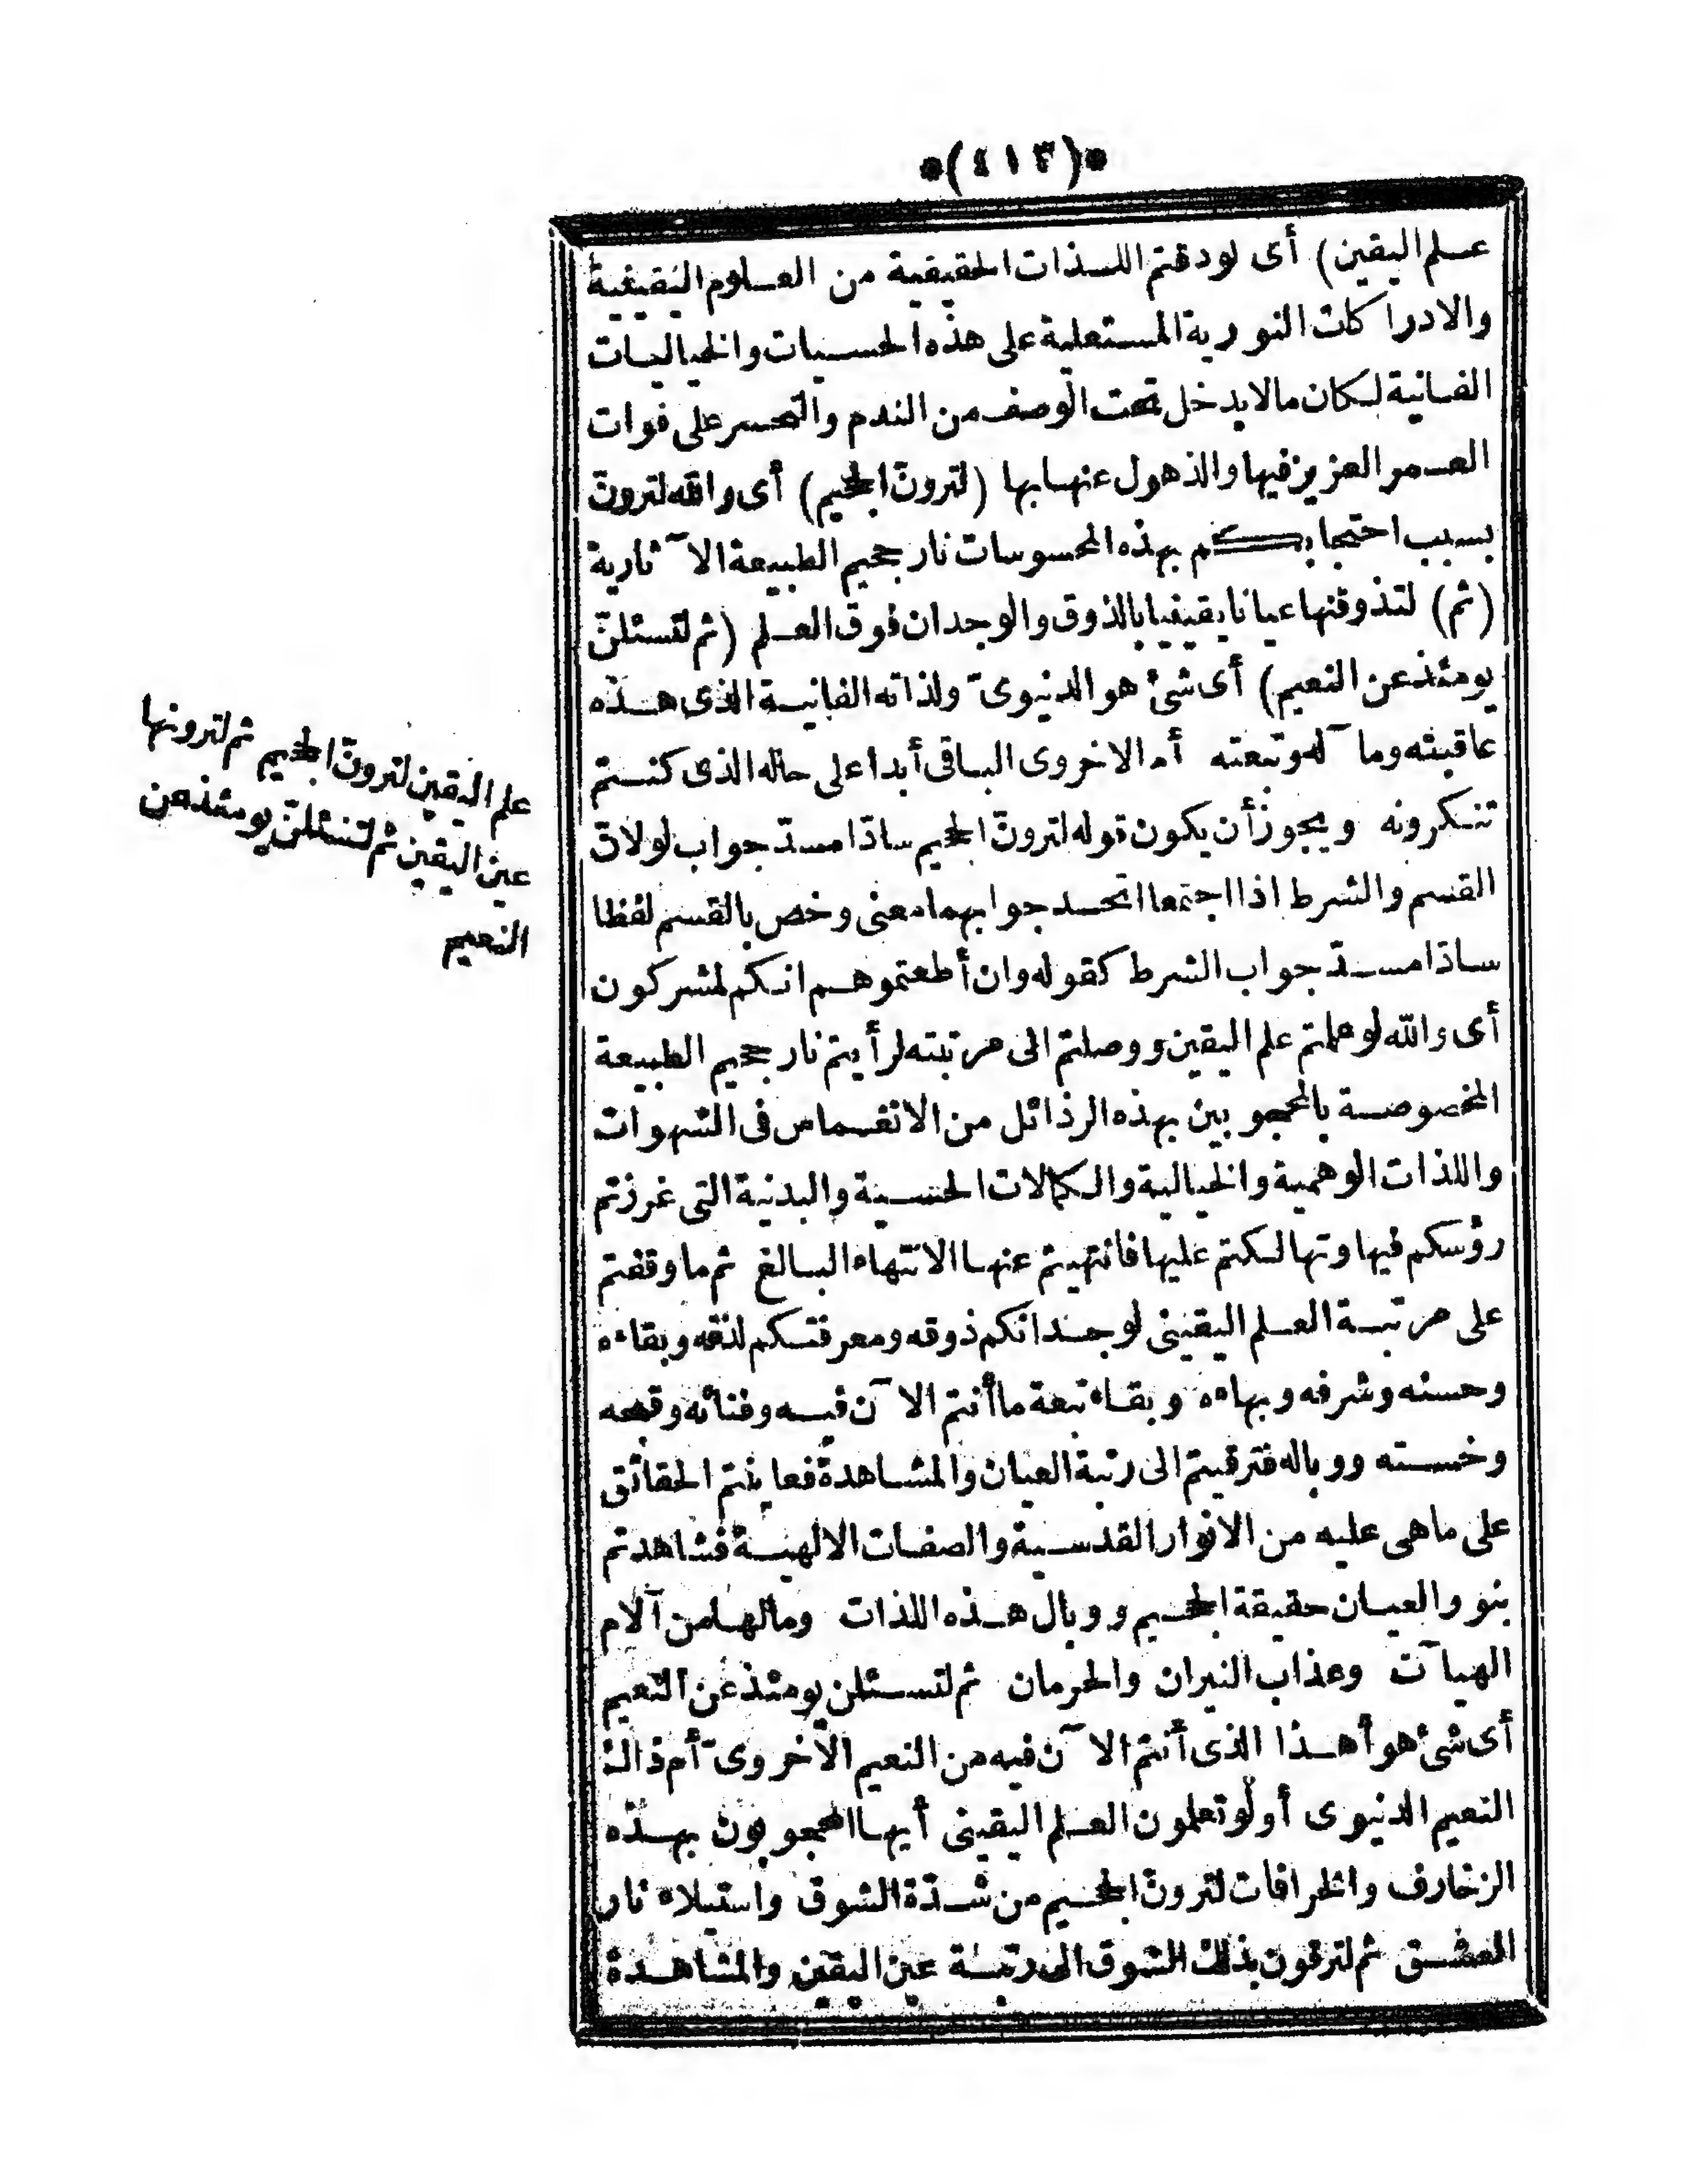 *(٤١٣)*
علم اليقين) أى لو ذقتم اللذات الحقيقية من العلوم اليقينية
والادراكات النورية المستعلية على هذه الحسيات والخياليات
الفانية لكان مالا يدخل تحت الوصف من الندم والتحسر على فوات
العمر العزيز فيها والذهول عنها بها (لترونّ الجحيم) أى والله لترونّ
بسبب احتجابكم بهذه المحسوسات نار جحيم الطبيعة الآثارية
(ثم) لتذوقنها عيانا يقينيا بالذوق والوجدان فوق العلم (ثم لتسئلنّ
يومئذ عن النعيم) أى شئ هو الدنيوىّ ولذاته الفانية الذى هذه
عاقبته ومآله وتبعته أم الاخروى الباقى أبدا على حاله الذى كنتم
تنكرونه ويجوز أن يكون قوله لترونّ الجحيم سادّا مسدّ جواب لو لانّ
القسم والشرط اذا اجتمعا اتحد جوابهما معنى وخص بالقسم لفظا
سادّا مسدّ جواب الشرط كقوله وان أطعتموهم انكم لمشركون
أى والله لو علمتم علم اليقين ووصلتم الى مرتبته لرأيتم نار جحيم الطبيعة
المخصوصة بالمحجوبين بهذه الرذائل من الانغماس فى الشهوات
واللذات الوهمية والخيالية والكمالات الحسية والبدنية التى غرزتم
رؤسكم فيها وتهالكتم عليها فانتهيتم عنها الانتهاء البالغ ثم ما وقفتم
على مرتبة العلم اليقينى لوجدانكم ذوقه ومعرفتكم لذته وبقاءه
وحسنه وشرفه وبهاءه وبقاء تبعة ما أنتم الآن فيه وفنائه وقبحه
وخسته ووباله فترقيتم الى رتبة العيان والمشاهدة فعاينتم الحقائق
على ما هى عليه من الانوار القدسية والصفات الالهية فشاهدتم
بنور العيان حقيقة الجحيم ووبال هذه اللذات ومالها من آلام
الهيآت وعذاب النيران والحرمان ثم لتسئلن يومئذ عن النعيم
أى شئ هو أهذا الذى أنتم الآن فيه من النعيم الاخروىّ أم ذالك
النعيم الدنيوى أو لو تعلمون العلم اليقينى أيها المحجوبون بهذه
الزخارف والخرافات لترونّ الجحيم من شدّة الشوق واستيلاء نار
العشق ثم لترقون بذلك الشوق الى رتبة عين اليقين والمشاهدة
علم اليقين لترونّ الجحيم ثم لترونها
عين اليقين ثم لتسئلنّ يومئذ عن
النعيم